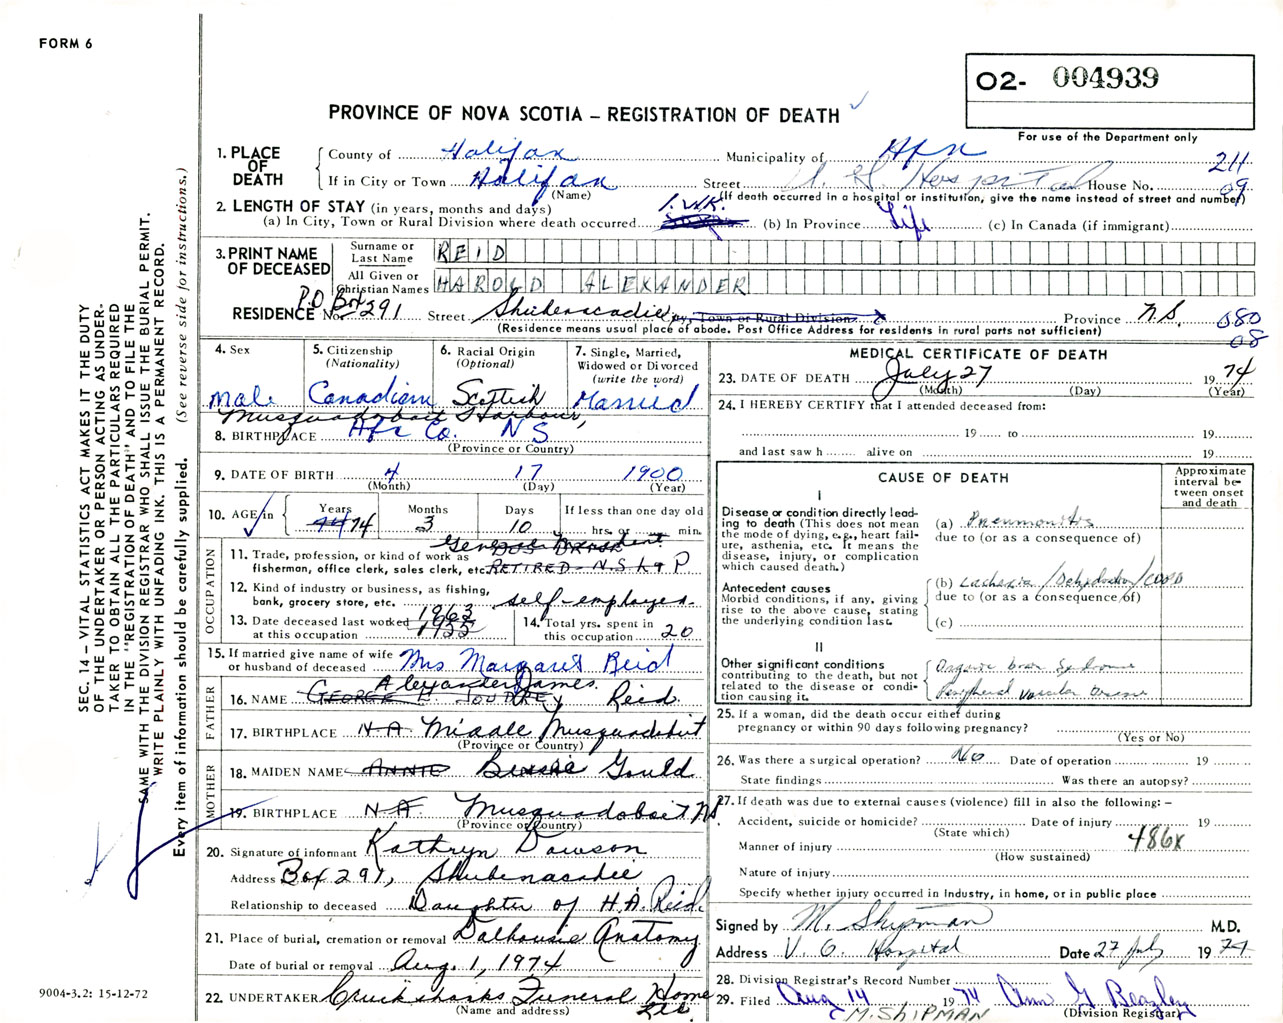 FORM 6
O2- 004939
PROVINCE OF NOVA SCOTIA – REGISTRATION OF DEATH
For use of the Department only
1. PLACE OF DEATH
County of Halifax Municipality of Hfx 211
If in City or Town Halifax Street V. G. Hospital House No. 09
(Name) (If death occurred in a hospital or institution, give the name instead of street and number)
2. LENGTH OF STAY (in years, months and days) 1. WK.
(a) In City, Town or Rural Division where death occurred (b) In Province Life (c) In Canada (if immigrant)
3. PRINT NAME OF DECEASED
Surname or Last Name REID
All Given or Christian Names HAROLD ALEXANDER
P.O. Box
RESIDENCE No. 291 Street Shubenacadie City, Town or Rural Division Province N.S. 080
08
(Residence means usual place of abode. Post Office Address for residents in rural parts not sufficient)
4. Sex
Male
5. Citizenship (Nationality)
Canadian
6. Racial Origin (Optional)
Scottish
7. Single, Married, Widowed or Divorced (write the word)
Married
Musquodoboit Harbour,
8. BIRTHPLACE Hfx Co. NS
(Province or Country)
9. DATE OF BIRTH 4 17 1900
(Month) (Day) (Year)
10. AGE in Years Months Days If less than one day old
74 3 10 hrs. or min.
OCCUPATION
11. Trade, profession, or kind of work as fisherman, office clerk, sales clerk, etc. RETIRED - N.S L & P
12. Kind of industry or business, as fishing, bank, grocery store, etc. self-employed.
13. Date deceased last worked at this occupation 1963 1955
14. Total yrs. spent in this occupation 20
15. If married give name of wife or husband of deceased Mrs Margaret Reid
FATHER
Alexander James.
16. NAME GEORGE Reid
17. BIRTHPLACE N.A. Middle Musquodoboit
(Province or Country)
MOTHER
18. MAIDEN NAME ANNIE Bessie Gould
19. BIRTHPLACE N.A. Musquodoboit, NS
(Province or Country)
20. Signature of informant Kathryn Dawson
Address Box 291, Shubenacadie
Relationship to deceased Daughter of H.A. Reid.
21. Place of burial, cremation or removal Dalhousie Anatomy
Date of burial or removal Aug. 1, 1974
22. UNDERTAKER Cruikshanks Funeral Home Ltd.
(Name and address)
MEDICAL CERTIFICATE OF DEATH
23. DATE OF DEATH July 27 1974
(Month) (Day) (Year)
24. I HEREBY CERTIFY that I attended deceased from:
19 to 19
and last saw h alive on 19
CAUSE OF DEATH
Approximate interval between onset and death
I
Disease or condition directly leading to death (This does not mean the mode of dying, e.g., heart failure, asthenia, etc. It means the disease, injury, or complication which caused death.)
(a) Pneumonitis
due to (or as a consequence of)
Antecedent causes
Morbid conditions, if any, giving rise to the above cause, stating the underlying condition last.
(b) Cachexia / Dehydration / COPD
due to (or as a consequence of)
(c)
II
Other significant conditions contributing to the death, but not related to the disease or condition causing it.
Organic brain Syndrome
Peripheral Vascular Disease
25. If a woman, did the death occur either during pregnancy or within 90 days following pregnancy?
(Yes or No)
26. Was there a surgical operation? No Date of operation 19
State findings Was there an autopsy?
27. If death was due to external causes (violence) fill in also the following: –
Accident, suicide or homicide? Date of injury 19
(State which) 486X
Manner of injury
(How sustained)
Nature of injury
Specify whether injury occurred in Industry, in home, or in public place
Signed by M. Shipman M.D.
Address V. G. Hospital Date 27 July 1974
28. Division Registrar's Record Number
29. Filed Aug 14 1974 Ann G Beazley
(Division Registrar)
M. SHIPMAN
SEC. 14 – VITAL STATISTICS ACT MAKES IT THE DUTY
OF THE UNDERTAKER OR PERSON ACTING AS UNDER-
TAKER TO OBTAIN ALL THE PARTICULARS REQUIRED
IN THE "REGISTRATION OF DEATH" AND TO FILE THE
SAME WITH THE DIVISION REGISTRAR WHO SHALL ISSUE THE BURIAL PERMIT.
WRITE PLAINLY WITH UNFADING INK. THIS IS A PERMANENT RECORD.
Every item of information should be carefully supplied. (See reverse side for instructions.)
9004-3.2: 15-12-72